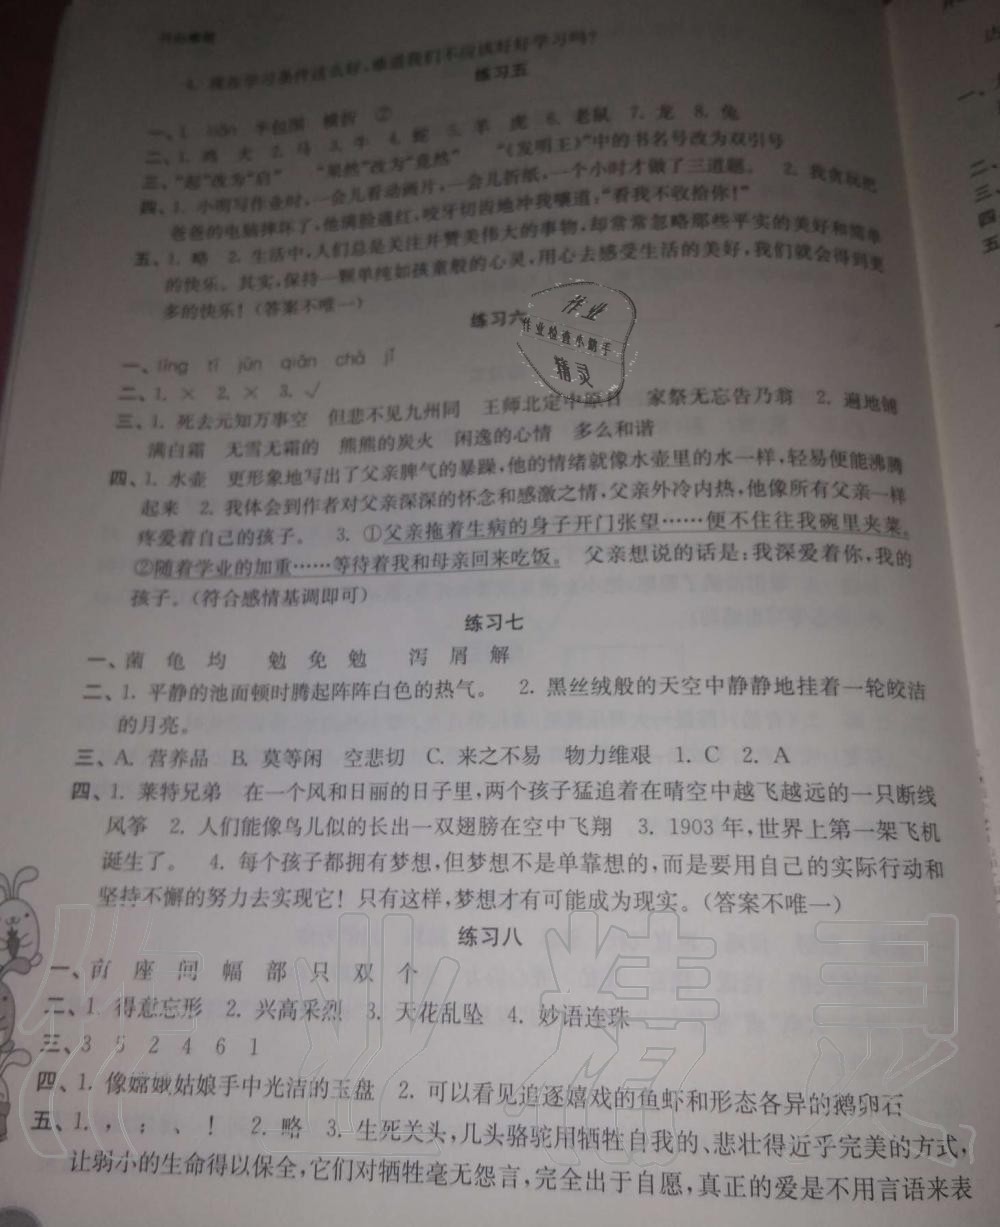 4. 现在学习条件这么好,难道我们不应该好好学习吗?
练习五
一、1. 半包围 横折 ②
二、1. 鸡 犬 2. 马 3. 牛 4. 蛇 5. 羊 虎 6. 老鼠 7. 龙 8. 兔
三、“起”改为“启” “果然”改为“竟然” “《发明王》”中的书名号改为双引号
四、1. 小明写作业时,一会儿看动画片,一会儿折纸,一个小时才做了三道题。 2. 我贪玩把
爸爸的电脑摔坏了,他满脸通红,咬牙切齿地冲我嚷道:“看我不收拾你!”
五、1. 略 2. 生活中,人们总是关注并赞美伟大的事物,却常常忽略那些平实的美好和简单
的快乐。其实,保持一颗单纯如孩童般的心灵,用心去感受生活的美好,我们就会得到更
多的快乐!(答案不唯一)
练习六
一、líng tī jūn qiān chà jǐ
二、1. × 2. × 3. √
三、1. 死去元知万事空 但悲不见九州同 王师北定中原日 家祭无忘告乃翁 2. 遍地铺
满白霜 无雪无霜的 熊熊的炭火 闲逸的心情 多么和谐
四、1. 水壶 更形象地写出了父亲脾气的暴躁,他的情绪就像水壶里的水一样,轻易便能沸腾
起来 2. 我体会到作者对父亲深深的怀念和感激之情,父亲外冷内热,他像所有父亲一样
疼爱着自己的孩子。 3. ①父亲拖着生病的身子开门张望……便不住往我碗里夹菜。
②随着学业的加重……等待着我和母亲回来吃饭。 父亲想说的话是:我深爱着你,我的
孩子。(符合感情基调即可)
作业
作业检查小助手
精灵
练习七
一、菌 龟 均 勉 免 勉 泻 屑 解
二、1. 平静的池面顿时腾起阵阵白色的热气。 2. 黑丝绒般的天空中静静地挂着一轮皎洁
的月亮。
三、A. 营养品 B. 莫等闲 空悲切 C. 来之不易 物力维艰 1. C 2. A
四、1. 莱特兄弟 在一个风和日丽的日子里,两个孩子猛追着在晴空中越飞越远的一只断线
风筝 2. 人们能像鸟儿似的长出一双翅膀在空中飞翔 3. 1903 年,世界上第一架飞机
诞生了。 4. 每个孩子都拥有梦想,但梦想不是单靠想的,而是要用自己的实际行动和
坚持不懈的努力去实现它!只有这样,梦想才有可能成为现实。(答案不唯一)
练习八
一、亩 座 间 幅 部 只 双 个
二、1. 得意忘形 2. 兴高采烈 3. 天花乱坠 4. 妙语连珠
三、3 5 2 4 6 1
四、1. 像嫦娥姑娘手中光洁的玉盘 2. 可以看见追逐嬉戏的鱼虾和形态各异的鹅卵石
五、1. , ; 、 ! 2. 略 3. 生死关头,几头骆驼用牺牲自我的、悲壮得近乎完美的方式,
让弱小的生命得以保全,它们对牺牲毫无怨言,完全出于自愿,真正的爱是不用言语来表
作业精灵